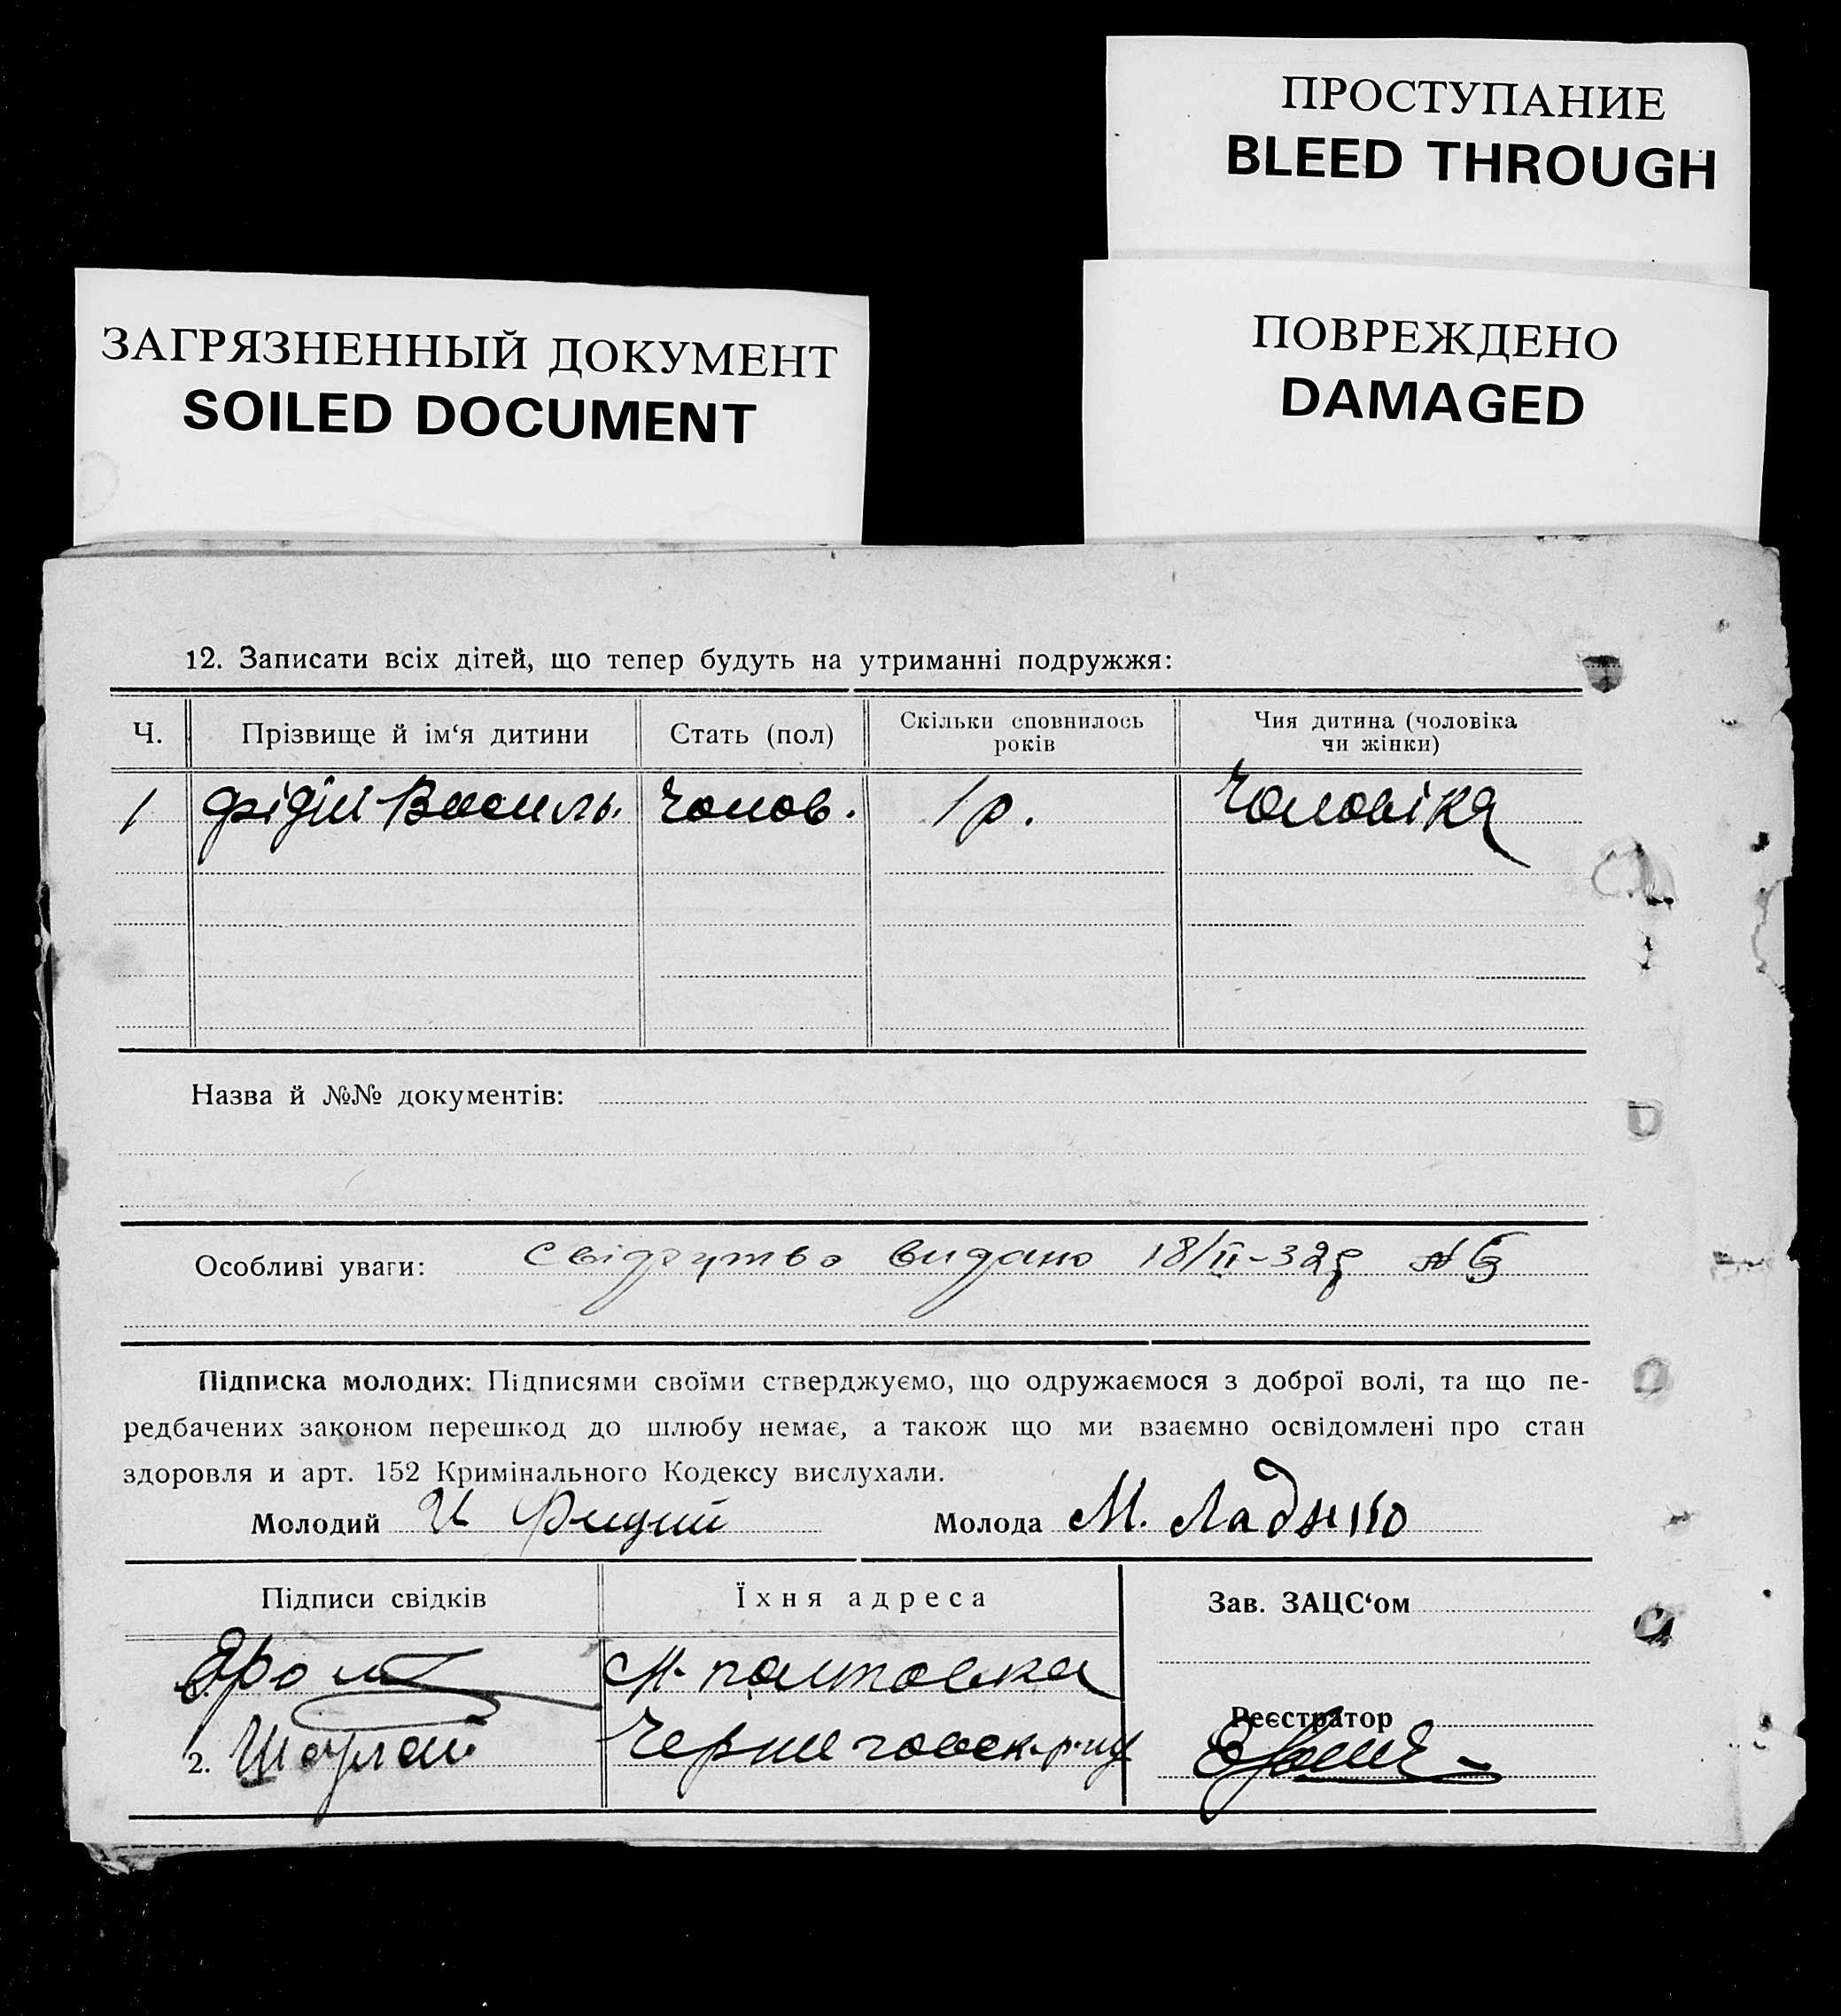 ПРОСТУПАНИЕ
BLEED THROUGH
ЗАГРЯЗНЕННЫЙ ДОКУМЕНТ
SOILED DOCUMENT
ПОВРЕЖДЕНО
DAMAGED
12. Записати всіх дітей, що тепер будуть на утриманні подружжя:
Ч. Прізвище й ім‘я дитини Стать (пол) Скільки сповнилось років Чия дитина (чоловіка чи жінки)
1 Фідій Василь. чолов. 1 р. Чоловіка
Назва й №№ документів:
Особливі уваги: видано 18/II-32р
Підписка молодих: Підписями своїми стверджуємо, що одружаємося з доброї волі, та що пе-
редбачених законом перешкод до шлюбу немає, а також що ми взаємно освідомлені про стан
здоровля и арт. 152 Кримінального Кодексу вислухали.
Молодий И Молода М.
Підписи свідків Їхня адреса Зав. ЗАЦС‘ом
М.
Реєстратор
2.